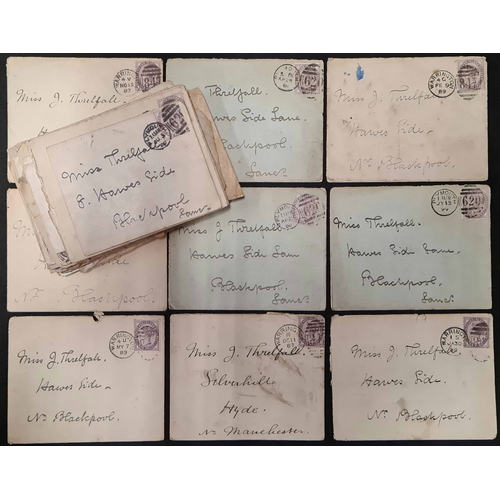 WARRINGTON
NO 13
87
Miss J. Threlfall
H
Threlfall.
Hawes Side Lane.
Blackpool.
Lancs.
WARRINGTON
FE 9
89
Miss J. Threlfall.
Hawes Side
Nr. Blackpool.
Miss Threlfall
8. Hawes Side
Blackpool
Lancs.
Nr. Blackpool
Miss Threlfall.
Hawes Side Lane
Blackpool.
Lancs.
PLYMOUTH
JY 13
620
Miss Threlfall.
Hawes Side Lane.
Blackpool.
Lancs.
WARRINGTON
4 U
MY 7
89
Miss J. Threlfall.
Hawes Side.
Nr. Blackpool.
WARRINGTON
OC 11
87
Miss J. Threlfall
Silverhill
Hyde.
Nr. Manchester.
WARRINGTON
JA 30
Miss J. Threlfall.
Hawes Side.
Nr. Blackpool.